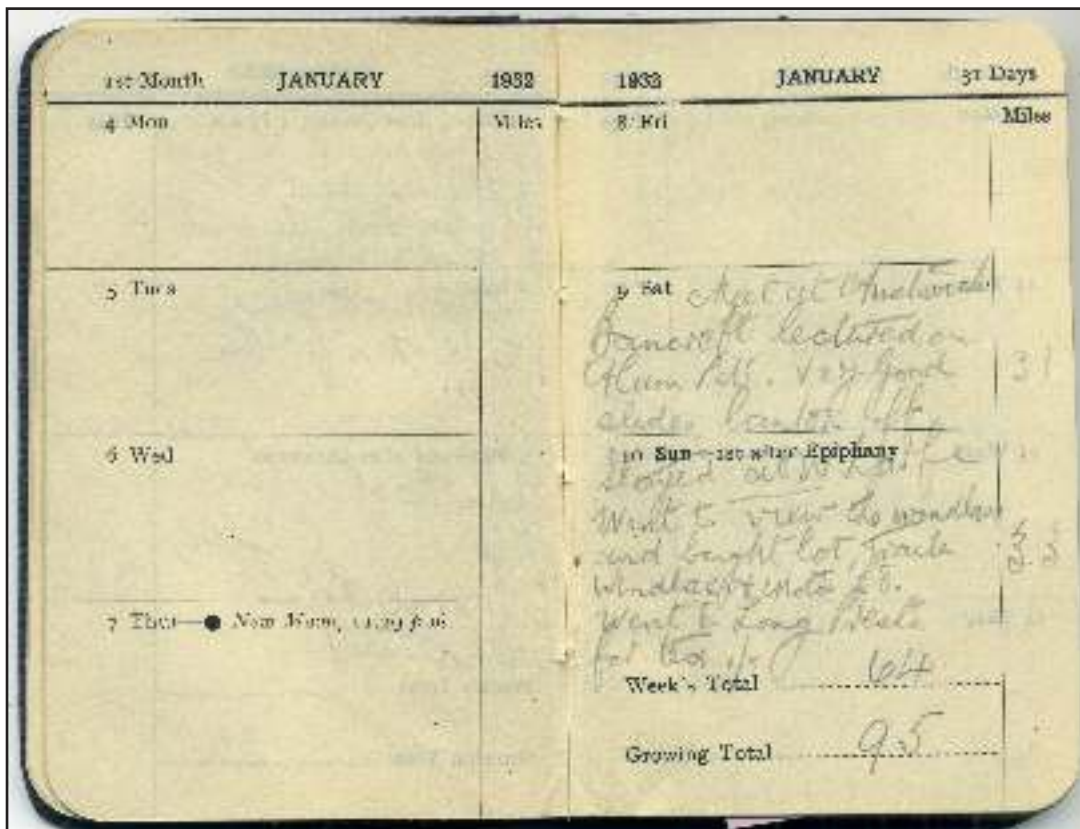 1st Month JANUARY 1932
4 Mon Miles
5 Tues
6 Wed
7 Thur New Moon, p.m.
1932 JANUARY 31 Days
8 Fri Miles
9 Sat Meet at
Bancroft lectured on
Alum Pot. Very good 31
slides
10 Sun—1st after Epiphany
Went to view the windlass
and bought lot, 33
windlass & £8.
Went to Long
for tea
Week's Total 64
Growing Total 95